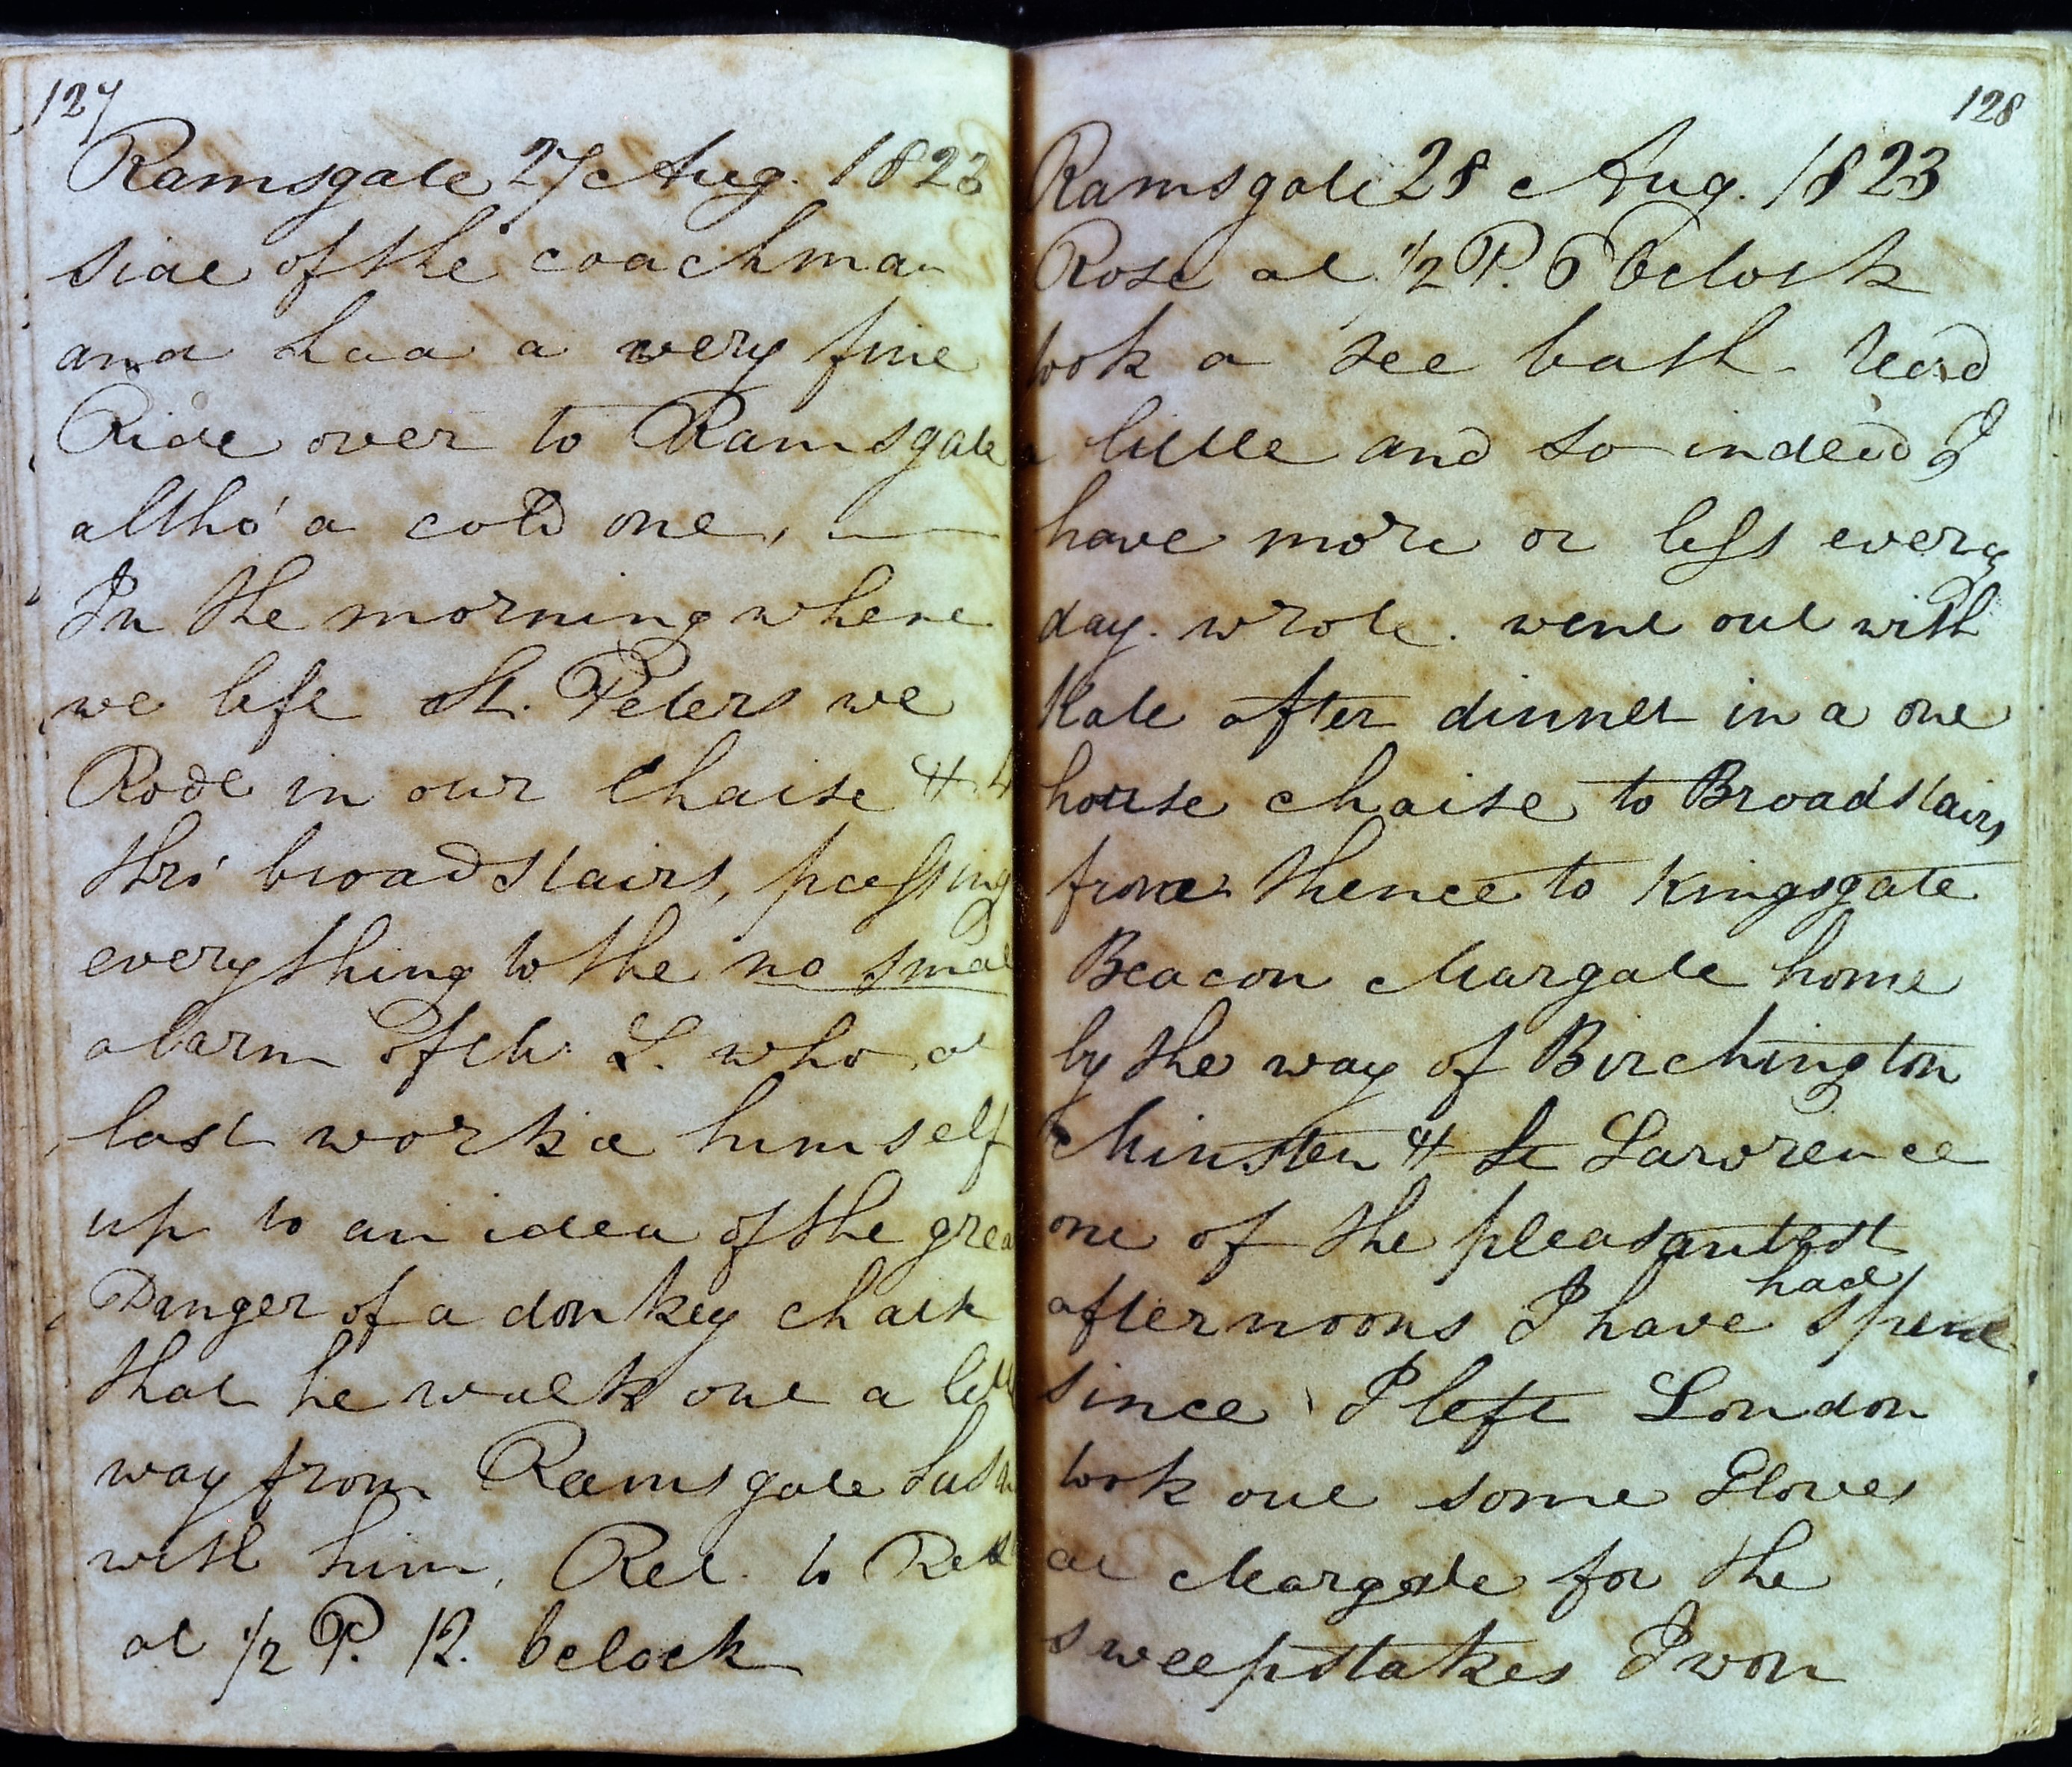 127
Ramsgate 27 Aug. 1823
side of the coachman
and had a very fine
Ride over to Ramsgate
altho' a cold one, —
In the morning where
we left St. Peters we
Rode in our Chaise & 4
thro' broadstairs, passing
everything to the no smal
alarm of M. L. who at
last work'd himself
up to an idea of the grea
Danger of a donkey chaise
that he walk out a little
way from Ramsgate
with him, Ret. to Rest
at 1/2 P. 12. Oclock
128
Ramsgate 28 Aug. 1823
Rose at 1/2 P. 6 Oclock
took a see bath. Read
a little and so indeed I
have more or less every
day. wrote. went out with
Kate after dinner in a one
horse chaise to Broadstairs
from thence to Kingsgate
Beacon Margate home
by the way of Birchington
Minster & St Lawrence
one of the pleasantest
afternoons I have had spent
since I left London
took out some Gloves
at Margate for the
sweepstakes I won